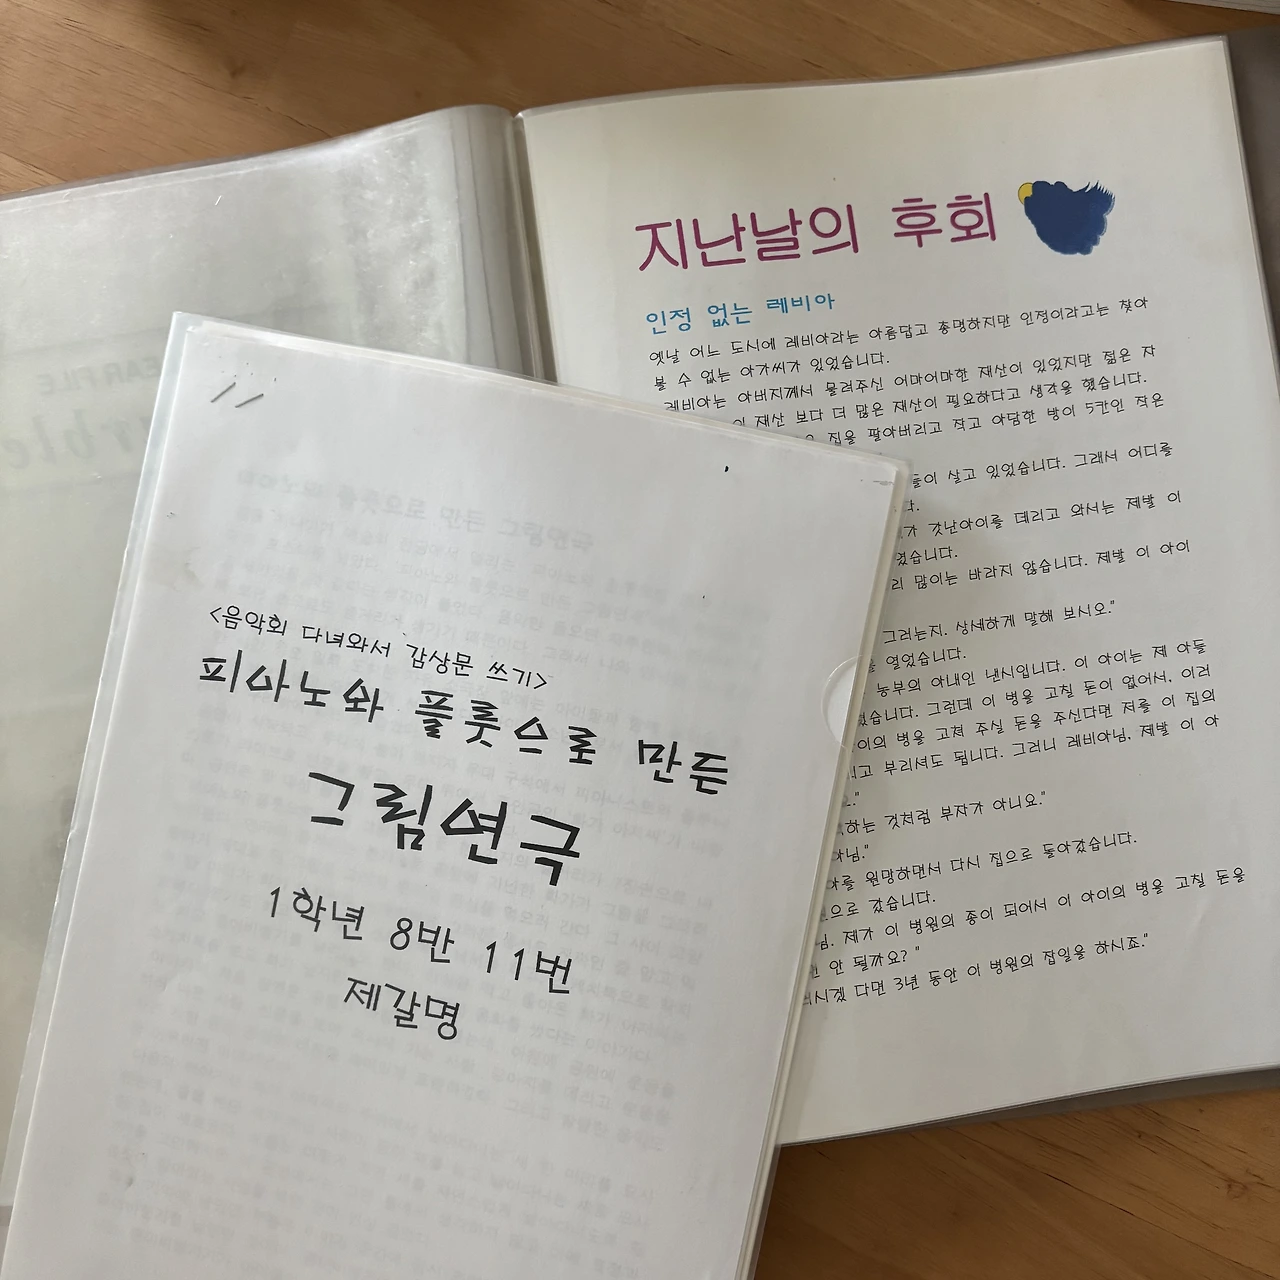 <음악회 다녀와서 감상문 쓰기>
피아노와 플룻으로 만든
그림연극
1학년 8반 11번
제갈명
지난날의 후회
인정 없는 레비아
옛날 어느 도시에 레비아라는 아름답고 총명하지만 인정이라고는 찾아
볼 수 없는 아가씨가 있었습니다.
레비아는 아버지께서 물려주신 어마어마한 재산이 있었지만 젊은 자
재산 보다 더 많은 재산이 필요하다고 생각을 했습니다.
집을 팔아버리고 작고 아담한 방이 5칸인 작은
들이 살고 있었습니다. 그래서 어디를
다.
가 갓난아이를 데리고 와서는 제발 이
였습니다.
리 많이는 바라지 않습니다. 제발 이 아이
그러는지. 상세하게 말해 보시오."
를 열었습니다.
농부의 아내인 낸시입니다. 이 아이는 제 아들
렸습니다. 그런데 이 병을 고칠 돈이 없어서, 이러
이의 병을 고쳐 주실 돈을 주신다면 저를 이 집의
고 부리셔도 됩니다. 그러니 레비아님, 제발 이 아
"
하는 것처럼 부자가 아니요."
아님."
아를 원망하면서 다시 집으로 돌아갔습니다.
원으로 갔습니다.
님, 제가 이 병원의 종이 되어서 이 아이의 병을 고칠 돈을
안 될까요? "
시겠 다면 3년 동안 이 병원의 잡일을 하시죠."